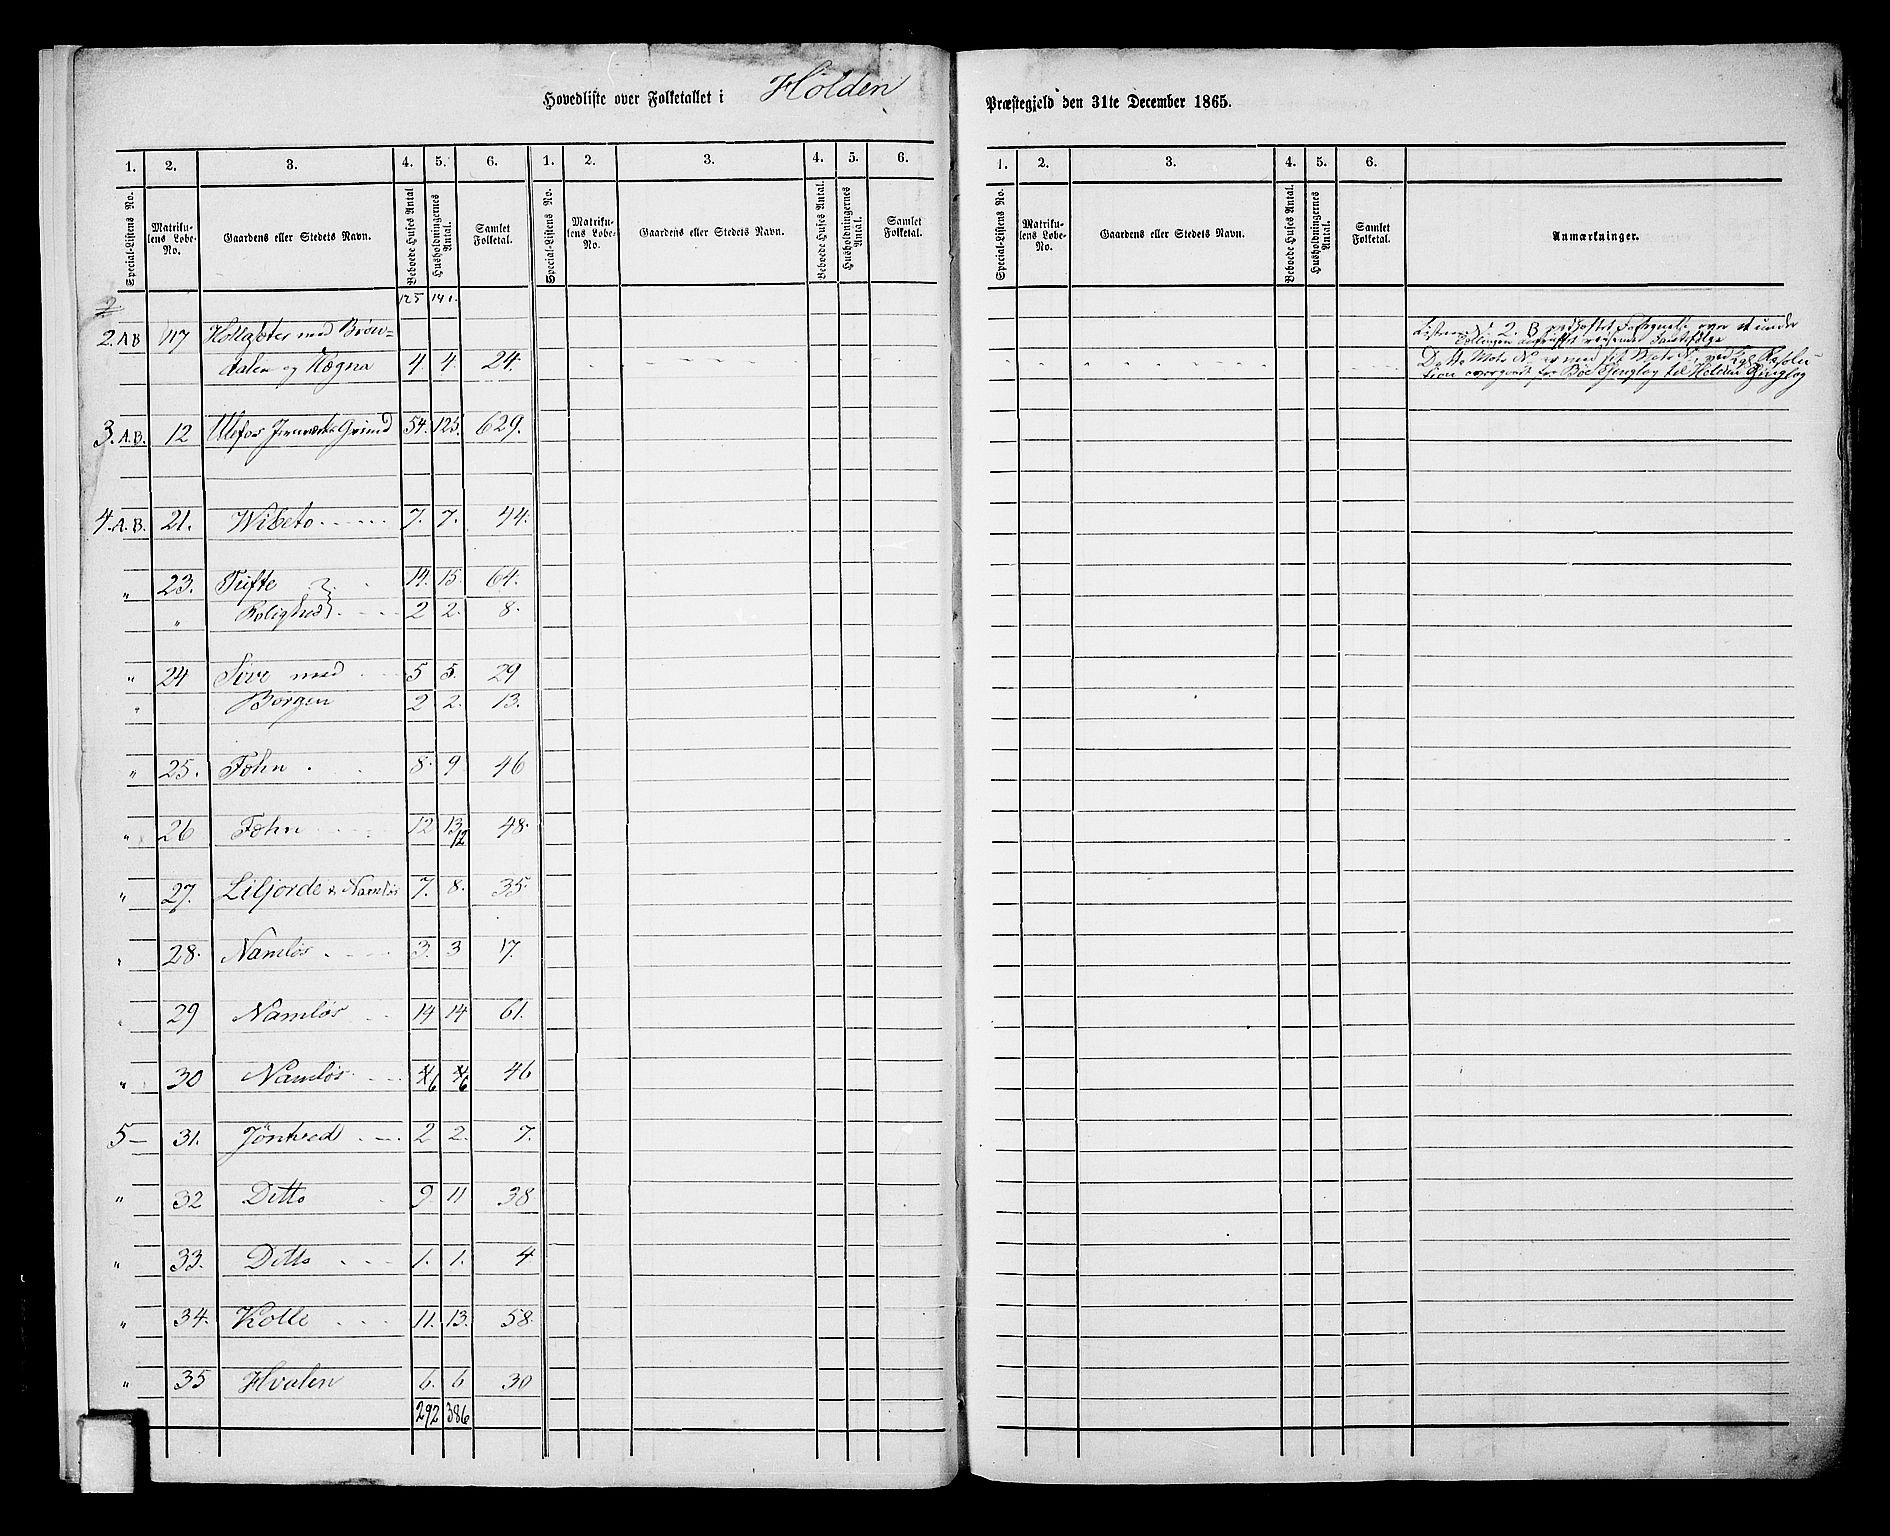 Hovedliste over Folketallet i Holden
Præstegjeld den 31te December 1865.
1. 2. 3. 4. 5. 6. 1. 2. 3. 4. 5. 6.
Special-Listens No. Matrikulens Løbe-No. Gaardens eller Stedets Navn. Beboede Huses Antal Husholdningernes Antal. Samlet Folketal. Special-Listens No. Matrikulens Løbe-No. Gaardens eller Stedets Navn. Beboede Huses Antal. Husholdningernes Antal. Samlet Folketal.
125 141.
2. A B 117 Holtgbter med Brøn-
dalen og Rægna 4. 4. 24.
3. A. B. 12 Ulefos Jernværks Grund 54. 125. 629.
4. A. B. 21. Wibeto 7. 7. 44.
" 23. Tufte 14. 15. 64.
" Rolighed 2 2. 8.
" 24 Sive med 5 5. 29
" Borgen 2 2. 13.
" 25. Fohn 8. 9. 46
" 26 Fohn 12 13 12 48.
" 27. Liljorde & Namløs 7. 8. 35.
" 28. Namløs 3. 3 17.
" 29 Namløs 14 14 61.
" 30 Namløs 6 6 46
5 — 31. Jøntved 2 2. 7.
" 32 Ditto 9. 11 38
" 33. Ditto 1. 1. 4
" 34. Kolle 11. 13. 58.
" 35 Hvalen 6. 6 30
292 386
1. 2. 3. 4. 5. 6.
Special-Listens No. Matrikulens Løbe-No. Gaardens eller Stedets Navn. Beboede Huses Antal. Husholdningernes Antal. Samlet Folketal. Anmærkninger.
2. B vedføiet over et under
Tællingen reisende
Ditto Matr. N. er med sit Matr. N. ved Kgl. Resolu-
tion overgaaet fra Bøe Thinglag til Holden Thinglag